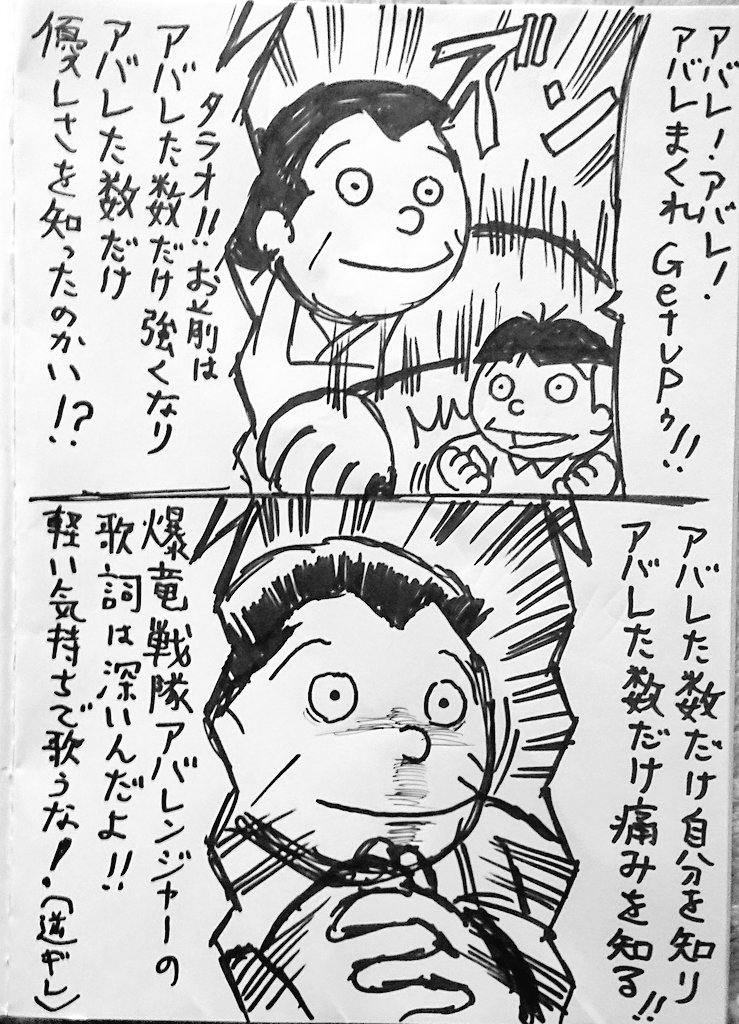 アバレ！アバレ！
アバレまくれ GetuPゥ!!
ズイン
タラオ!! お前は
アバレた数だけ強くなり
アバレた数だけ
優しさを知ったのかい!?
アバレた数だけ自分を知り
アバレた数だけ痛みを知る!!
爆竜戦隊アバレンジャーの
歌詞は深いんだよ!!
軽い気持ちで歌うな！（逆ギレ）